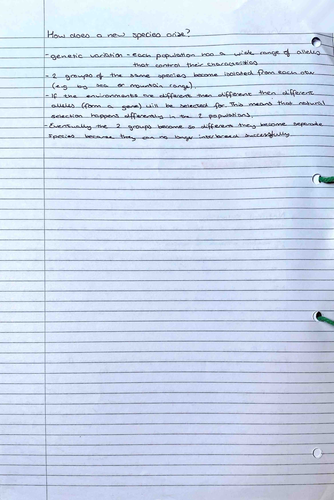 How does a new species arise?
- genetic variation - each population has a wide range of alleles
that control their characteristics
- 2 groups of the same species become isolated from each other
(e.g by sea or mountain range)
- If the environments are different then different then different
alleles (form a gene) will be selected for. This means that natural
selection happens differently in the 2 populations.
- Eventually the 2 groups become so different they become seperate
species because they can no longer interbreed successfully